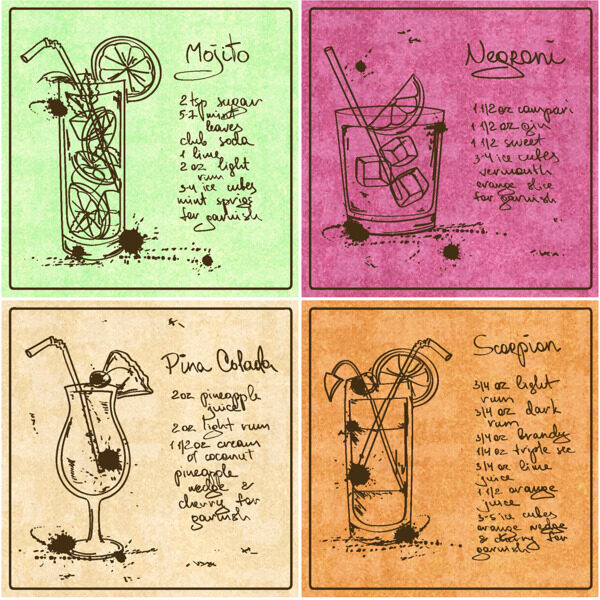 Mojito
2 tsp sugar
5-7 mint
leaves
club soda
1 lime
2 oz light
rum
3-4 ice cubes
mint sprigs
for garnish
Negroni
1 1/2 oz campari
1 1/2 oz gin
1 1/2 sweet
3-4 ice cubes
vermouth
orange slice
for garnish
Pina Colada
2 oz pineapple
juice
2 oz light rum
1 1/2 oz cream
of coconut
pineapple
wedge &
cherry for
garnish
Scorpion
3/4 oz light
rum
3/4 oz dark
rum
3/4 oz brandy
1/4 oz triple sec
3/4 oz lime
juice
1 1/2 orange
juice
3-5 ice cubes
orange wedge
& cherry for
garnish